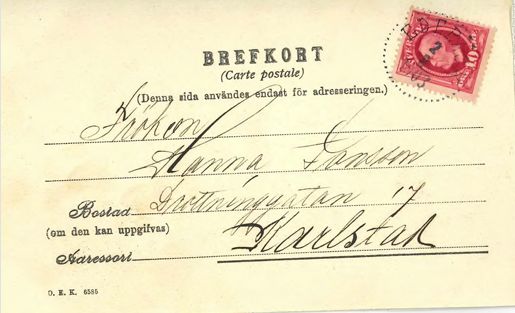 BREFKORT
(Carte postale)
(Denna sida användes endast för adresseringen.)
Fröken
Hanna Jansson
Bostad Drottninggatan 17
(om den kan uppgifvas)
Karlstad
Adressort
D. E. K. 6585